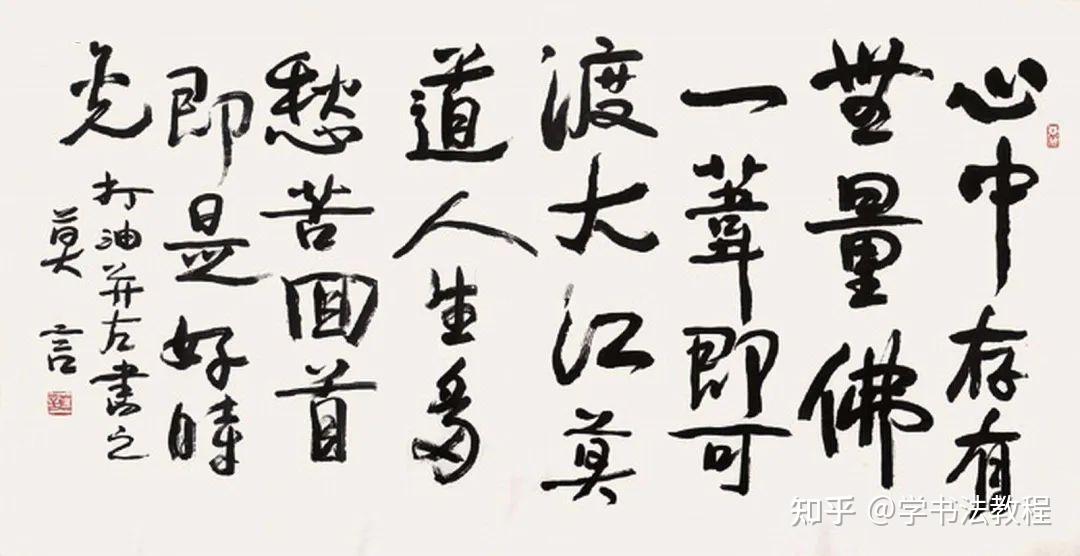 心中存有
無量佛
一葦即可
渡大江莫
道人生多
愁苦回首
即是好時
光
打油并左書之
莫言
知乎 @学书法教程